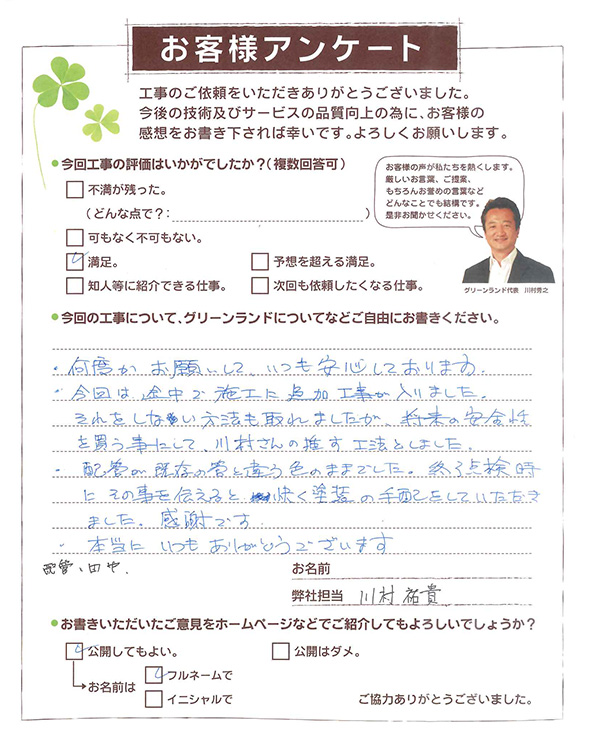 お客様アンケート
工事のご依頼をいただきありがとうございました。
今後の技術及びサービスの品質向上の為に、お客様の
感想をお書き下されば幸いです。よろしくお願いします。
●今回工事の評価はいかがでしたか？（複数回答可）
不満が残った。
（どんな点で？：　　　）
可もなく不可もない。
満足。
予想を超える満足。
知人等に紹介できる仕事。
次回も依頼したくなる仕事。
お客様の声が私たちを熱くします。
厳しいお言葉、ご提案、
もちろんお誉めの言葉など
どんなことでも結構です。
是非お聞かせください。
グリーンランド代表　川村秀之
●今回の工事について、グリーンランドについてなどご自由にお書きください。
・何度か お願いして、いつも安心しております。
・今回は 途中で 施工に 追加工事が入りました。
それをしない方法も取れましたが、将来の安全性
を買う事にして、川村さんの推す工法としました。
・配管が既存の管と違う色のままでした。終了点検時
に その事を伝えると、快く塗装の手配をしていただき
ました。感謝です
・本当に いつも ありがとうございます
配管、田や.
お名前
弊社担当 川村 祐貴
●お書きいただいたご意見をホームページなどでご紹介してもよろしいでしょうか？
公開してもよい。
公開はダメ。
お名前は
フルネームで
イニシャルで
ご協力ありがとうございました。